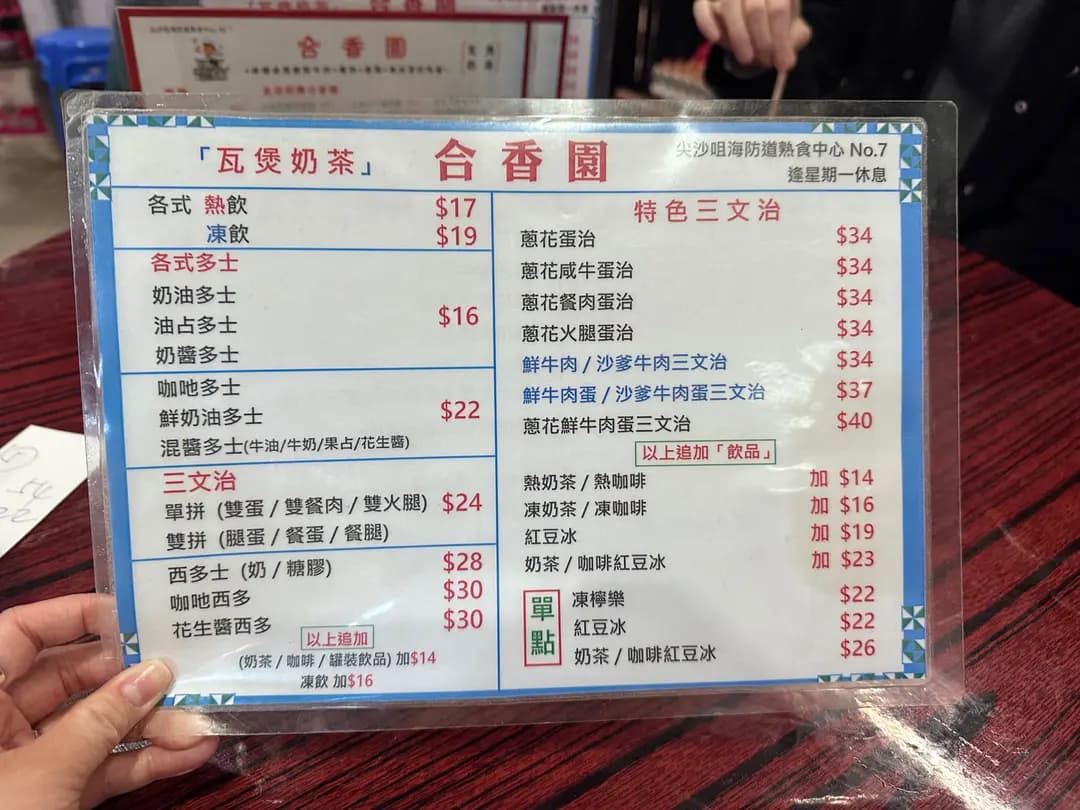 合香園
「瓦煲奶茶」 合香園
尖沙咀海防道熟食中心 No.7
逢星期一休息
各式 熱飲 $17
凍飲 $19
各式多士
奶油多士
油占多士 $16
奶醬多士
咖吔多士
鮮奶油多士 $22
混醬多士(牛油/牛奶/果占/花生醬)
三文治
單拼 (雙蛋 / 雙餐肉 / 雙火腿) $24
雙拼 (腿蛋 / 餐蛋 / 餐腿)
西多士 (奶 / 糖膠) $28
咖吔西多 $30
花生醬西多 $30
以上追加
(奶茶 / 咖啡 / 罐裝飲品) 加$14
凍飲 加$16
特色三文治
蔥花蛋治 $34
蔥花咸牛蛋治 $34
蔥花餐肉蛋治 $34
蔥花火腿蛋治 $34
鮮牛肉 / 沙爹牛肉三文治 $34
鮮牛肉蛋 / 沙爹牛肉蛋三文治 $37
蔥花鮮牛肉蛋三文治 $40
以上追加「飲品」
熱奶茶 / 熱咖啡 加 $14
凍奶茶 / 凍咖啡 加 $16
紅豆冰 加 $19
奶茶 / 咖啡紅豆冰 加 $23
單點
凍檸樂 $22
紅豆冰 $22
奶茶 / 咖啡紅豆冰 $26